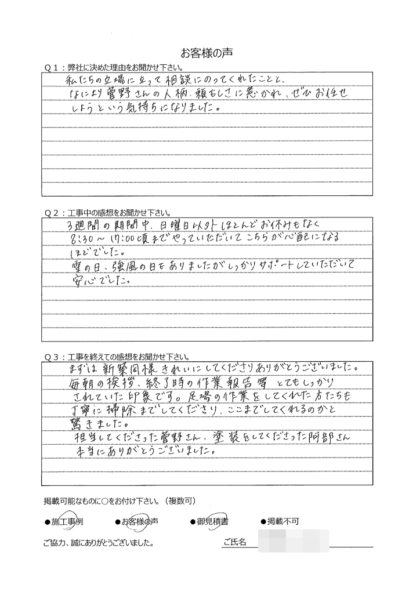 お客様の声
Q1：弊社に決めた理由をお聞かせ下さい。
私たちの立場に立って相談にのってくれたことと、
なにより菅野さんの人柄、頼もしさに惹かれ、ぜひお任せ
しようという気持ちになりました。
Q2：工事中の感想をお聞かせ下さい。
3週間の期間中、日曜日以外ほとんどお休みもなく
8:30～17:00頃までやっていただいてこちらが心配になる
ほどでした。
雪の日、強風の日もありましたがしっかりサポートしていただいて
安心でした。
Q3：工事を終えての感想をお聞かせ下さい。
まずは新築同様きれいにしてくださりありがとうございました。
毎朝の挨拶、終了時の作業報告等とてもしっかり
されていた印象です。足場の作業をしてくれた方たちも
丁寧に掃除までしてくださり、ここまでしてくれるのかと
驚きました。
担当してくださった菅野さん、塗装をしてくださった阿部さん
本当にありがとうございました。
掲載可能なものに○をお付け下さい。（複数可）
●施工事例 ●お客様の声 ●御見積書 ●掲載不可
ご協力、誠にありがとうございました。 ご氏名